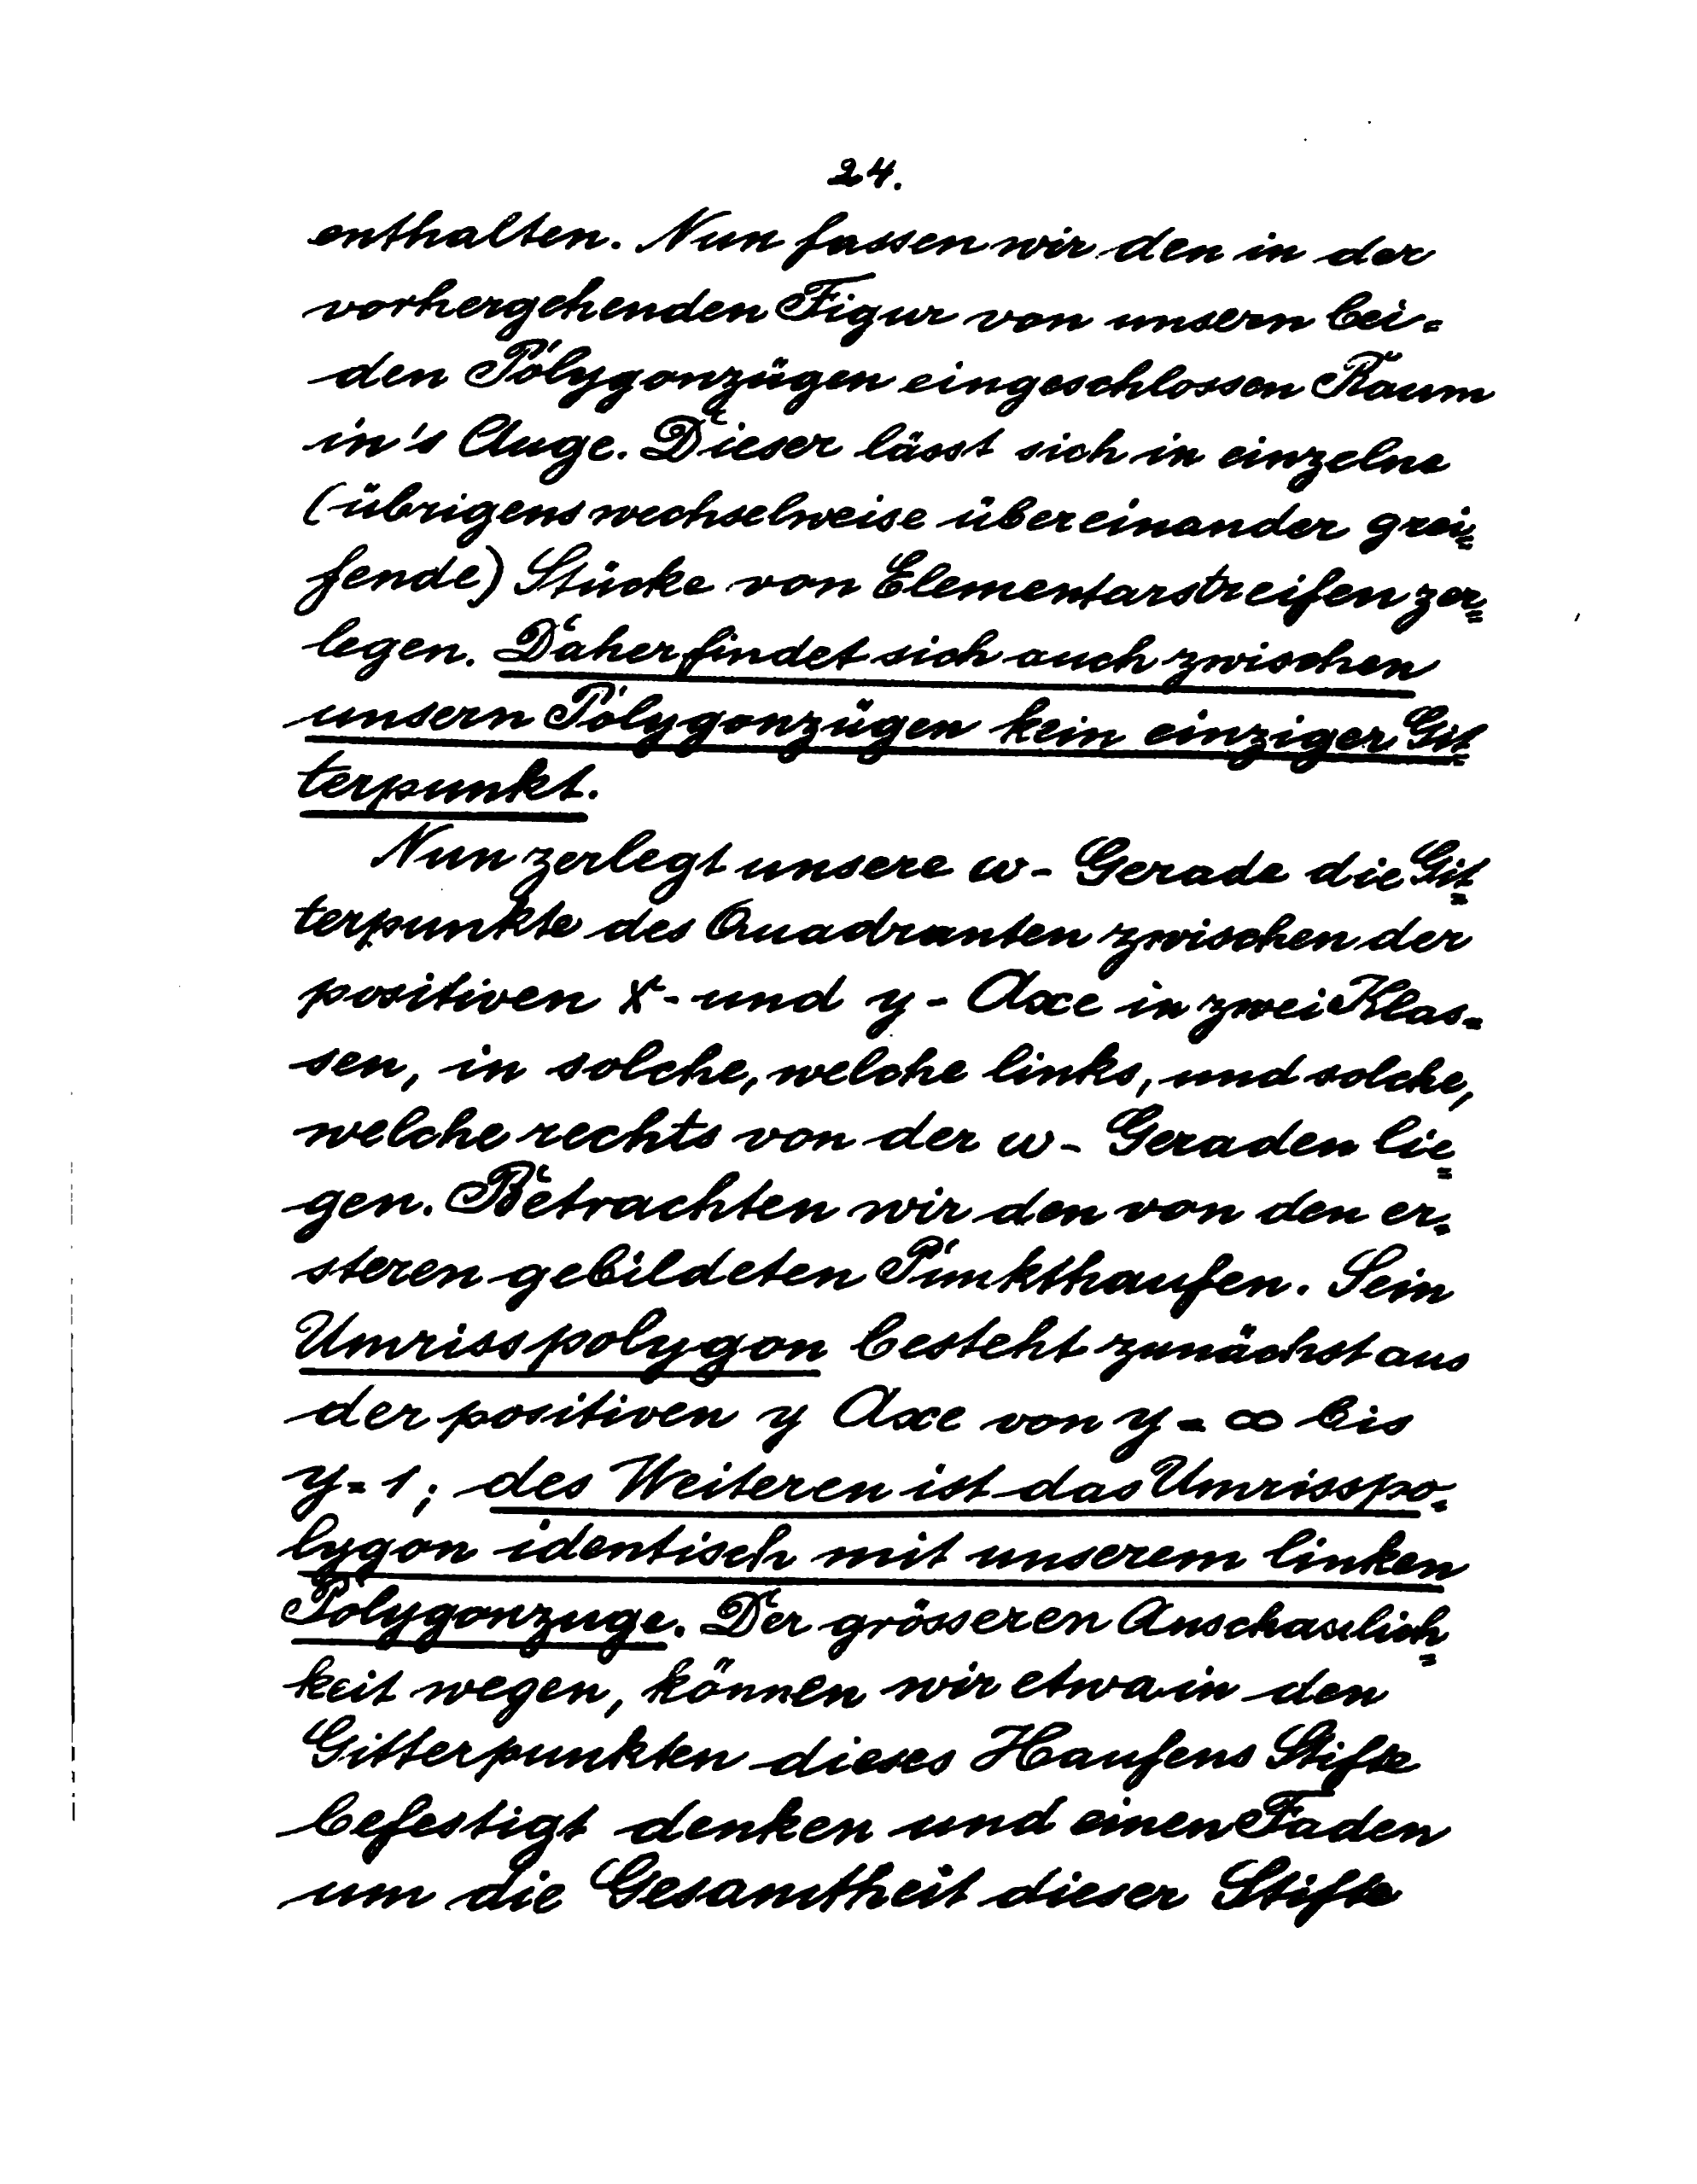 24.
enthalten. Nun fassen wir den in der
vorhergehenden Figur von unsern bei=
den Polygonzügen eingeschlossen Raum
in's Auge. Dieser lässt sich in einzelne
(übrigens wechselweise übereinander grei=
fende) Stücke von Elementarstreifen zer=
legen. Daher findet sich auch zwischen
unsern Polygonzügen kein einziger Git=
terpunkt.
Nun zerlegt unsere ω- Gerade die Git=
terpunkte des Quadranten zwischen der
positiven x- und y- Axe in zwei Klas=
sen, in solche, welche links, und solche,
welche rechts von der ω- Geraden lie=
gen. Betrachten wir den von den er=
steren gebildeten Punkthaufen. Sein
Umrisspolygon besteht zunächst aus
der positiven y Axe von y = ∞ bis
y = 1; des Weiteren ist das Umrisspo=
lygon identisch mit unserem linken
Polygonzuge. Der grösseren Anschaulich=
keit wegen, können wir etwa in den
Gitterpunkten dieses Haufens Stifte
befestigt denken und einen Faden
um die Gesamtheit dieser Stifte